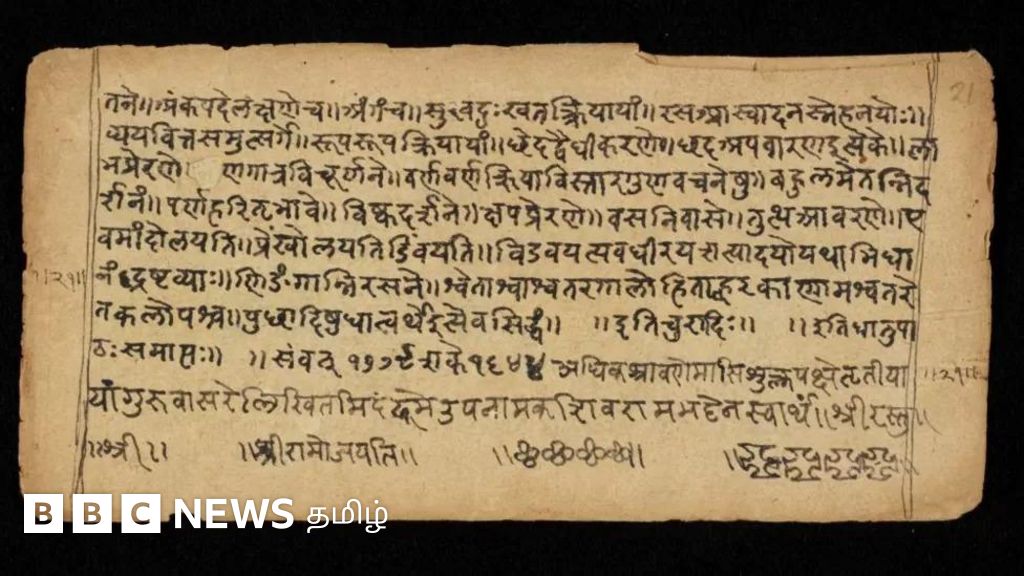 21
तने॥अंकपदेलक्षणेच॥अंगंच॥सुखदुःखतत्क्रियायां॥रसआस्वादनस्नेहनयोः॥
व्ययवित्तसमुत्सर्गे॥रूपरूपक्रियायां॥छेदद्वैधीकरणे॥छदअपवारणइत्येके॥ला
भप्रेरणे॥ णगात्रविचूर्णने॥वर्णवर्णक्रियाविस्तारगुणवचनेषु॥बहुलमेतन्निद
र्शनं॥पर्णहरितभावे॥विष्कदर्शने॥क्षपप्रेरणे॥वसनिवासे॥तुत्थआवरणे॥ए
वमांदोलयति॥प्रेंखोलयतिडिंवयति॥विडंवयत्यवधीरय
नं द्रष्टव्याः॥णिङंगान्निरसने॥श्वेताश्वाश्वतरगालोहिताह्वरकाणामश्वतरे
तकलोपश्च॥पुछादिषुधात्वर्थइत्येवसिद्धं॥ ॥इतिचुरादिः॥ ॥इतिधातुपा
ठः समाप्तः॥ ॥संवत् शके १६४४ अधिकश्रावणेमासिशुक्लपक्षेतृतीया
यांगुरुवासरेलिखितमिदं स्वार्थं॥श्रीरस्तु॥
॥श्री॥ ॥श्रीरामोजयति॥
BBC NEWS தமிழ்